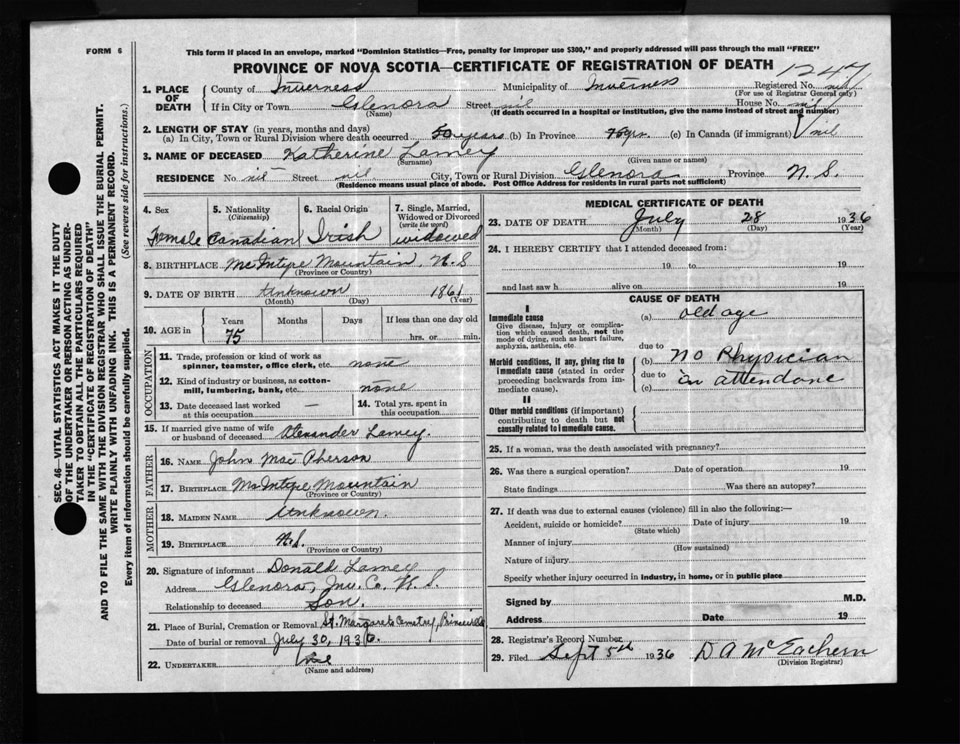 FORM 6
This form if placed in an envelope, marked "Dominion Statistics—Free, penalty for improper use $300," and properly addressed will pass through the mail "FREE"
PROVINCE OF NOVA SCOTIA—CERTIFICATE OF REGISTRATION OF DEATH
1247
1. PLACE OF DEATH
County of Inverness Municipality of Inverness Registered No. nil
(For use of Registrar General only)
If in City or Town Glenora Street nil House No. nil
(Name) (If death occurred in a hospital or institution, give the name instead of street and number)
2. LENGTH OF STAY (in years, months and days)
(a) In City, Town or Rural Division where death occurred 50 years (b) In Province 75 yrs. (c) In Canada (if immigrant) nil
3. NAME OF DECEASED Katherine Lamey
(Surname) (Given name or names)
RESIDENCE No. nil Street nil City, Town or Rural Division Glenora Province N. S.
(Residence means usual place of abode. Post Office Address for residents in rural parts not sufficient)
4. Sex 5. Nationality (Citizenship) 6. Racial Origin 7. Single, Married, Widowed or Divorced (write the word)
Female Canadian Irish widowed
8. BIRTHPLACE McIntype Mountain, N.S
(Province or Country)
9. DATE OF BIRTH Unknown 1861
(Month) (Day) (Year)
10. AGE in Years Months Days If less than one day old
75 hrs. or min.
OCCUPATION
11. Trade, profession or kind of work as spinner, teamster, office clerk, etc. none
12. Kind of industry or business, as cotton-mill, lumbering, bank, etc. none
13. Date deceased last worked at this occupation —
14. Total yrs. spent in this occupation
15. If married give name of wife or husband of deceased Alexander Lamey.
FATHER
16. NAME John Mac Pherson
17. BIRTHPLACE McIntype Mountain
(Province or Country)
MOTHER
18. MAIDEN NAME Unknown.
19. BIRTHPLACE N.S.
(Province or Country)
20. Signature of informant Donald Lamey
Address Glenora, Inv. Co. N. S.
Relationship to deceased Son.
21. Place of Burial, Cremation or Removal St. Margarets Cemetry,
Date of burial or removal July 30, 1936.
22. UNDERTAKER nil
(Name and address)
MEDICAL CERTIFICATE OF DEATH
23. DATE OF DEATH July 28 1936
(Month) (Day) (Year)
24. I HEREBY CERTIFY that I attended deceased from:
19 to 19
and last saw h alive on 19
CAUSE OF DEATH
I
Immediate cause
Give disease, injury or complication which caused death, not the mode of dying, such as heart failure, asphyxia, asthenia, etc.
(a) old age
due to
Morbid conditions, if any, giving rise to immediate cause (stated in order proceeding backwards from immediate cause).
(b) no Physician
due to
(c) in attendanc
II
Other morbid conditions (if important) contributing to death but not causally related to immediate cause.
25. If a woman, was the death associated with pregnancy?
26. Was there a surgical operation? Date of operation 19
State findings Was there an autopsy?
27. If death was due to external causes (violence) fill in also the following:—
Accident, suicide or homicide? Date of injury 19
(State which)
Manner of injury
(How sustained)
Nature of injury
Specify whether injury occurred in industry, in home, or in public place
Signed by M.D.
Address Date 19
28. Registrar's Record Number
29. Filed Sept 5th 1936 D A McEachern
(Division Registrar)
SEC. 46—VITAL STATISTICS ACT MAKES IT THE DUTY
OF THE UNDERTAKER OR PERSON ACTING AS UNDER-
TAKER TO OBTAIN ALL THE PARTICULARS REQUIRED
IN THE "CERTIFICATE OF REGISTRATION OF DEATH"
AND TO FILE THE SAME WITH THE DIVISION REGISTRAR WHO SHALL ISSUE THE BURIAL PERMIT.
WRITE PLAINLY WITH UNFADING INK. THIS IS A PERMANENT RECORD.
Every item of information should be carefully supplied. (See reverse side for instructions.)